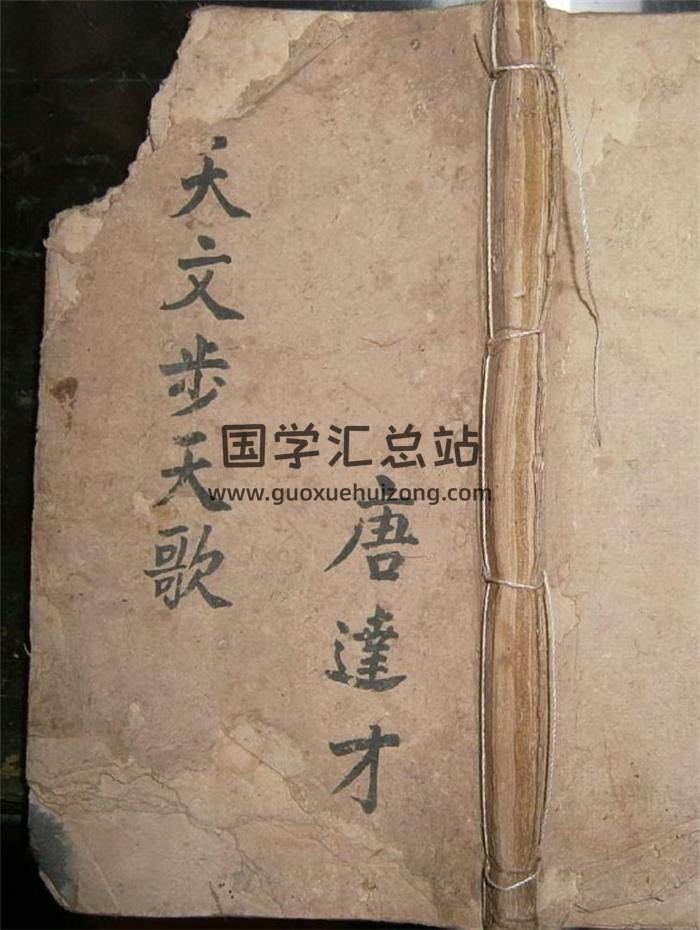 天文步天歌
唐達才
国学汇总站
www.guoxuehuizong.com